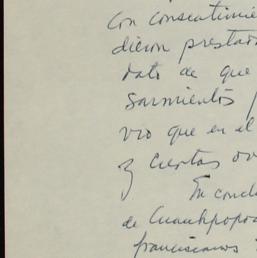 Con consentimie
dieron prestad
dato de que
Sarmientos
vio que en el
y ciertas ov
En concl
de Cuauhpopoc
franciscanos